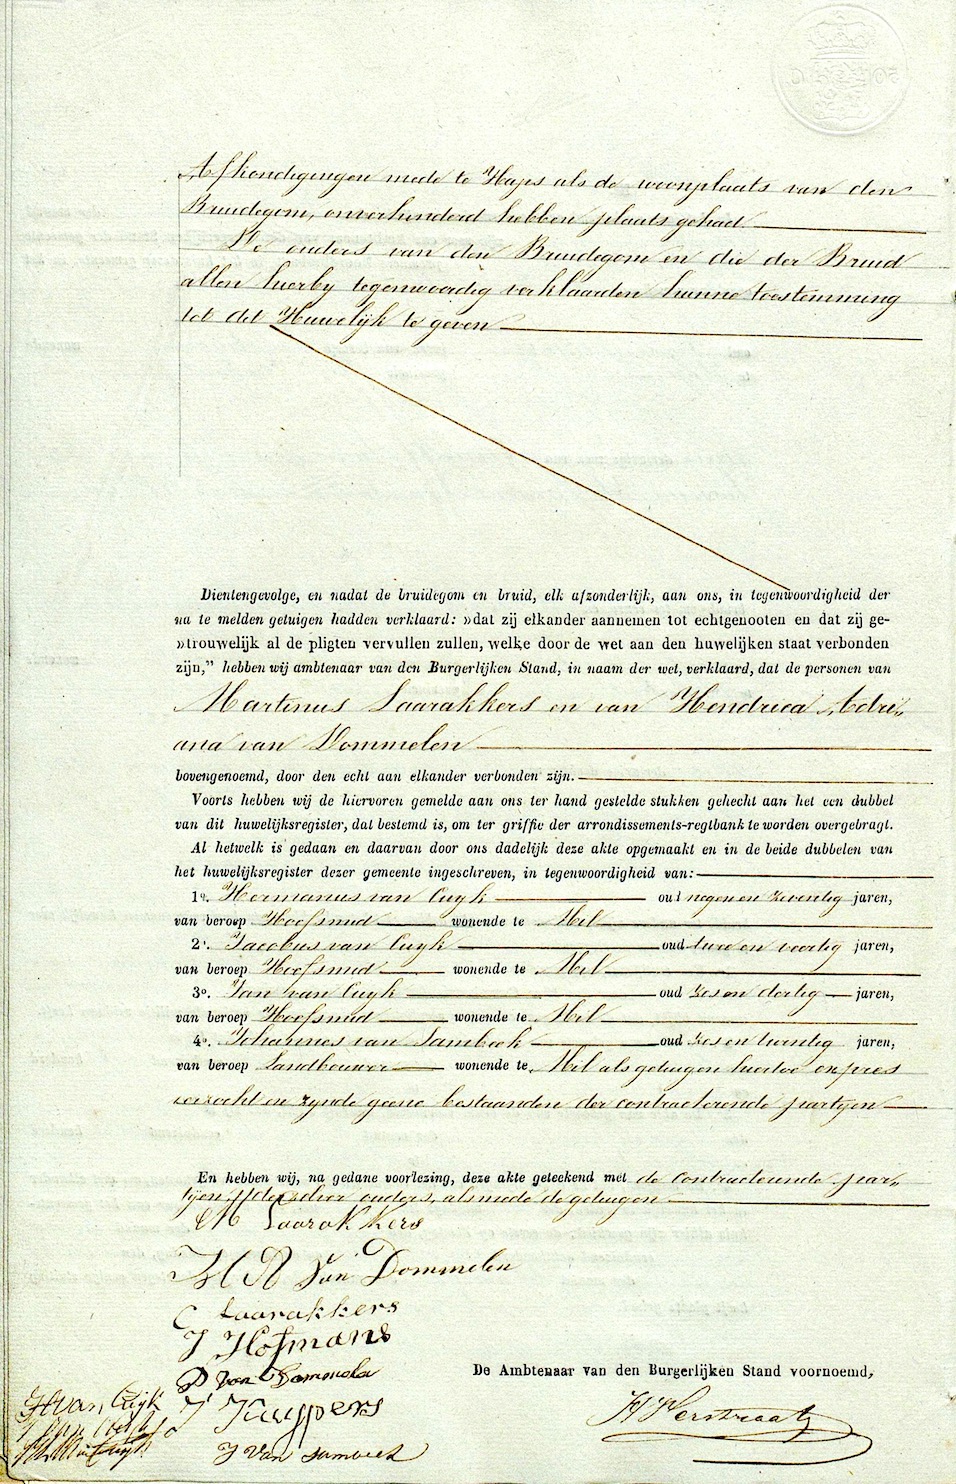 Afkondigingen mede te Haps als de woonplaats van den
Bruidegom, onverhinderd hebben plaats gehad.
De ouders van den Bruidegom en die der Bruid
allen hierby tegenwoordig verklaarden hunne toestemming
tot dit Huwelijk te geven
Dientengevolge, en nadat de bruidegom en bruid, elk afzonderlijk, aan ons, in tegenwoordigheid der
na te melden getuigen hadden verklaard: »dat zij elkander aannemen tot echtgenooten en dat zij ge-
»trouwelijk al de pligten vervullen zullen, welke door de wet aan den huwelijken staat verbonden
zijn,” hebben wij ambtenaar van den Burgerlijken Stand, in naam der wet, verklaard, dat de personen van
Martinus Laarakkers en van Hendrica Adri„
ana van Dommelen
bovengenoemd, door den echt aan elkander verbonden zijn.
Voorts hebben wij de hiervoren gemelde aan ons ter hand gestelde stukken gehecht aan het een dubbel
van dit huwelijksregister, dat bestemd is, om ter griffie der arrondissements-regtbank te worden overgebragt.
Al hetwelk is gedaan en daarvan door ons dadelijk deze akte opgemaakt en in de beide dubbelen van
het huwelijksregister dezer gemeente ingeschreven, in tegenwoordigheid van:
1o. Hermanus van Cuyk oud negen en zeventig jaren,
van beroep Hoefsmid wonende te Mil
2o. Jacobus van Cuyk oud twee en veertig jaren,
van beroep Hoefsmid wonende te Mil
3o. Jan van Cuyk oud zes en dertig jaren,
van beroep Hoefsmid wonende te Mil
4o. Johannes van Sambeek oud zes en twintig jaren,
van beroep Landbouwer wonende te Mil als getuigen hiertoe expres
verzocht en zynde geene bestaanden der contracterende partyen
En hebben wij, na gedane voorlezing, deze akte geteekend met de contracteerende par„
tyen, derzelver ouders, alsmede de getuigen
M Laarakkers
H A Van Dommelen
C Laarakkers
J Hofmans
P van Dommelen
De Ambtenaar van den Burgerlijken Stand voornoemd,
H van Cuijk
J Kuijpers
H Verstraaten
J van Cuijk
J Van Sambeek